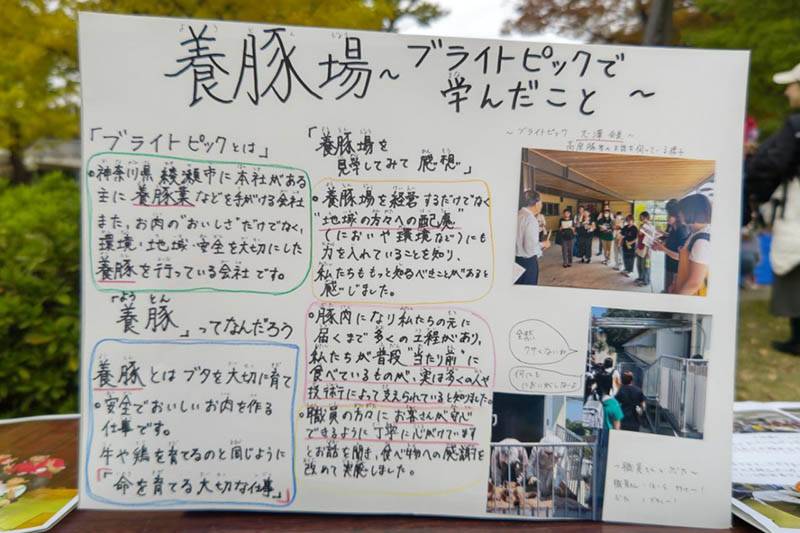 養豚場～ブライトピックで
学んだこと～
「ブライトピックとは」
・神奈川県綾瀬市に本社がある
主に養豚業などを手がける会社
また、お肉の"おいしさ"だけでなく、
環境・地域・安全を大切にした
養豚を行っている会社です。
「養豚」ってなんだろう
ようとん
養豚とはブタを大切に育て
・安全でおいしいお肉を作る
仕事です。
牛や鶏を育てるのと同じように
「命を育てる大切な仕事」
「養豚場を
見学してみて感想」
・養豚場を経営するだけでなく
"地域の方々への配慮"
(においや環境など)にも
力を入れていることを知り、
私たちももっと知るべきことがあると
感じました。
・豚肉になり私たちの元に
届くまで多くの工程があり、
私たちが普段"当たり前"に
食べているものが、実は多くの人や
技術によって支えられていると知りました。
・職員の方々にお客さんが安心
できるように丁寧に心がけています
とお話を聞き、食べ物への感謝を
改めて実感しました。
～ブライトピック
全然
クサくないね
何にも
においがしないよ